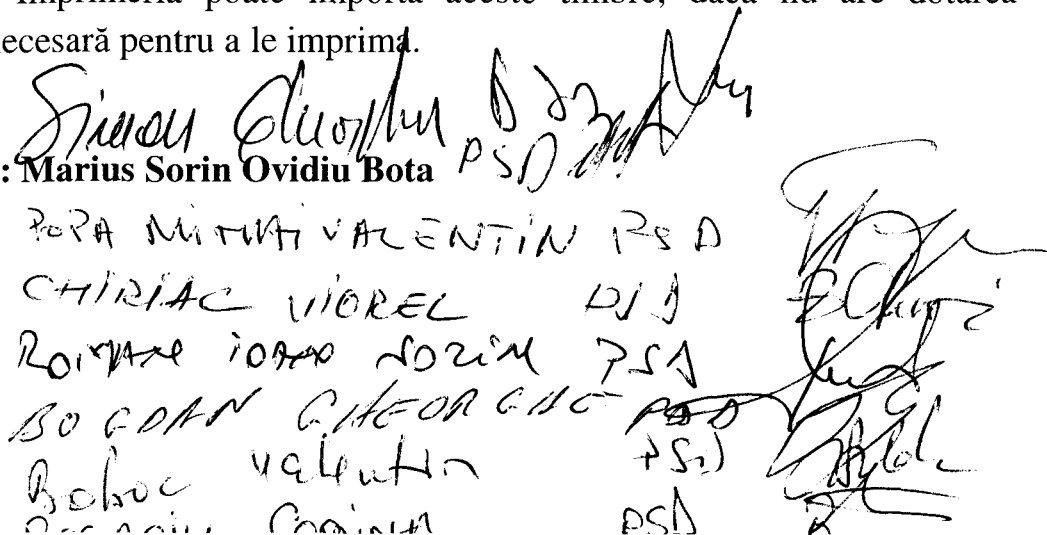 Imprimeria poate importa aceste timbre, dacă nu are dotarea
ecesară pentru a le imprima.
Simon Gheorghe PSD
: Marius Sorin Ovidiu Bota
POPA MIHAI VALENTIN PSD
CHIRIAC VIOREL PSD
IOAN SORIN PSD
BOGDAN GHEORGHE PSD
Boboc Valentin PSD
PSD